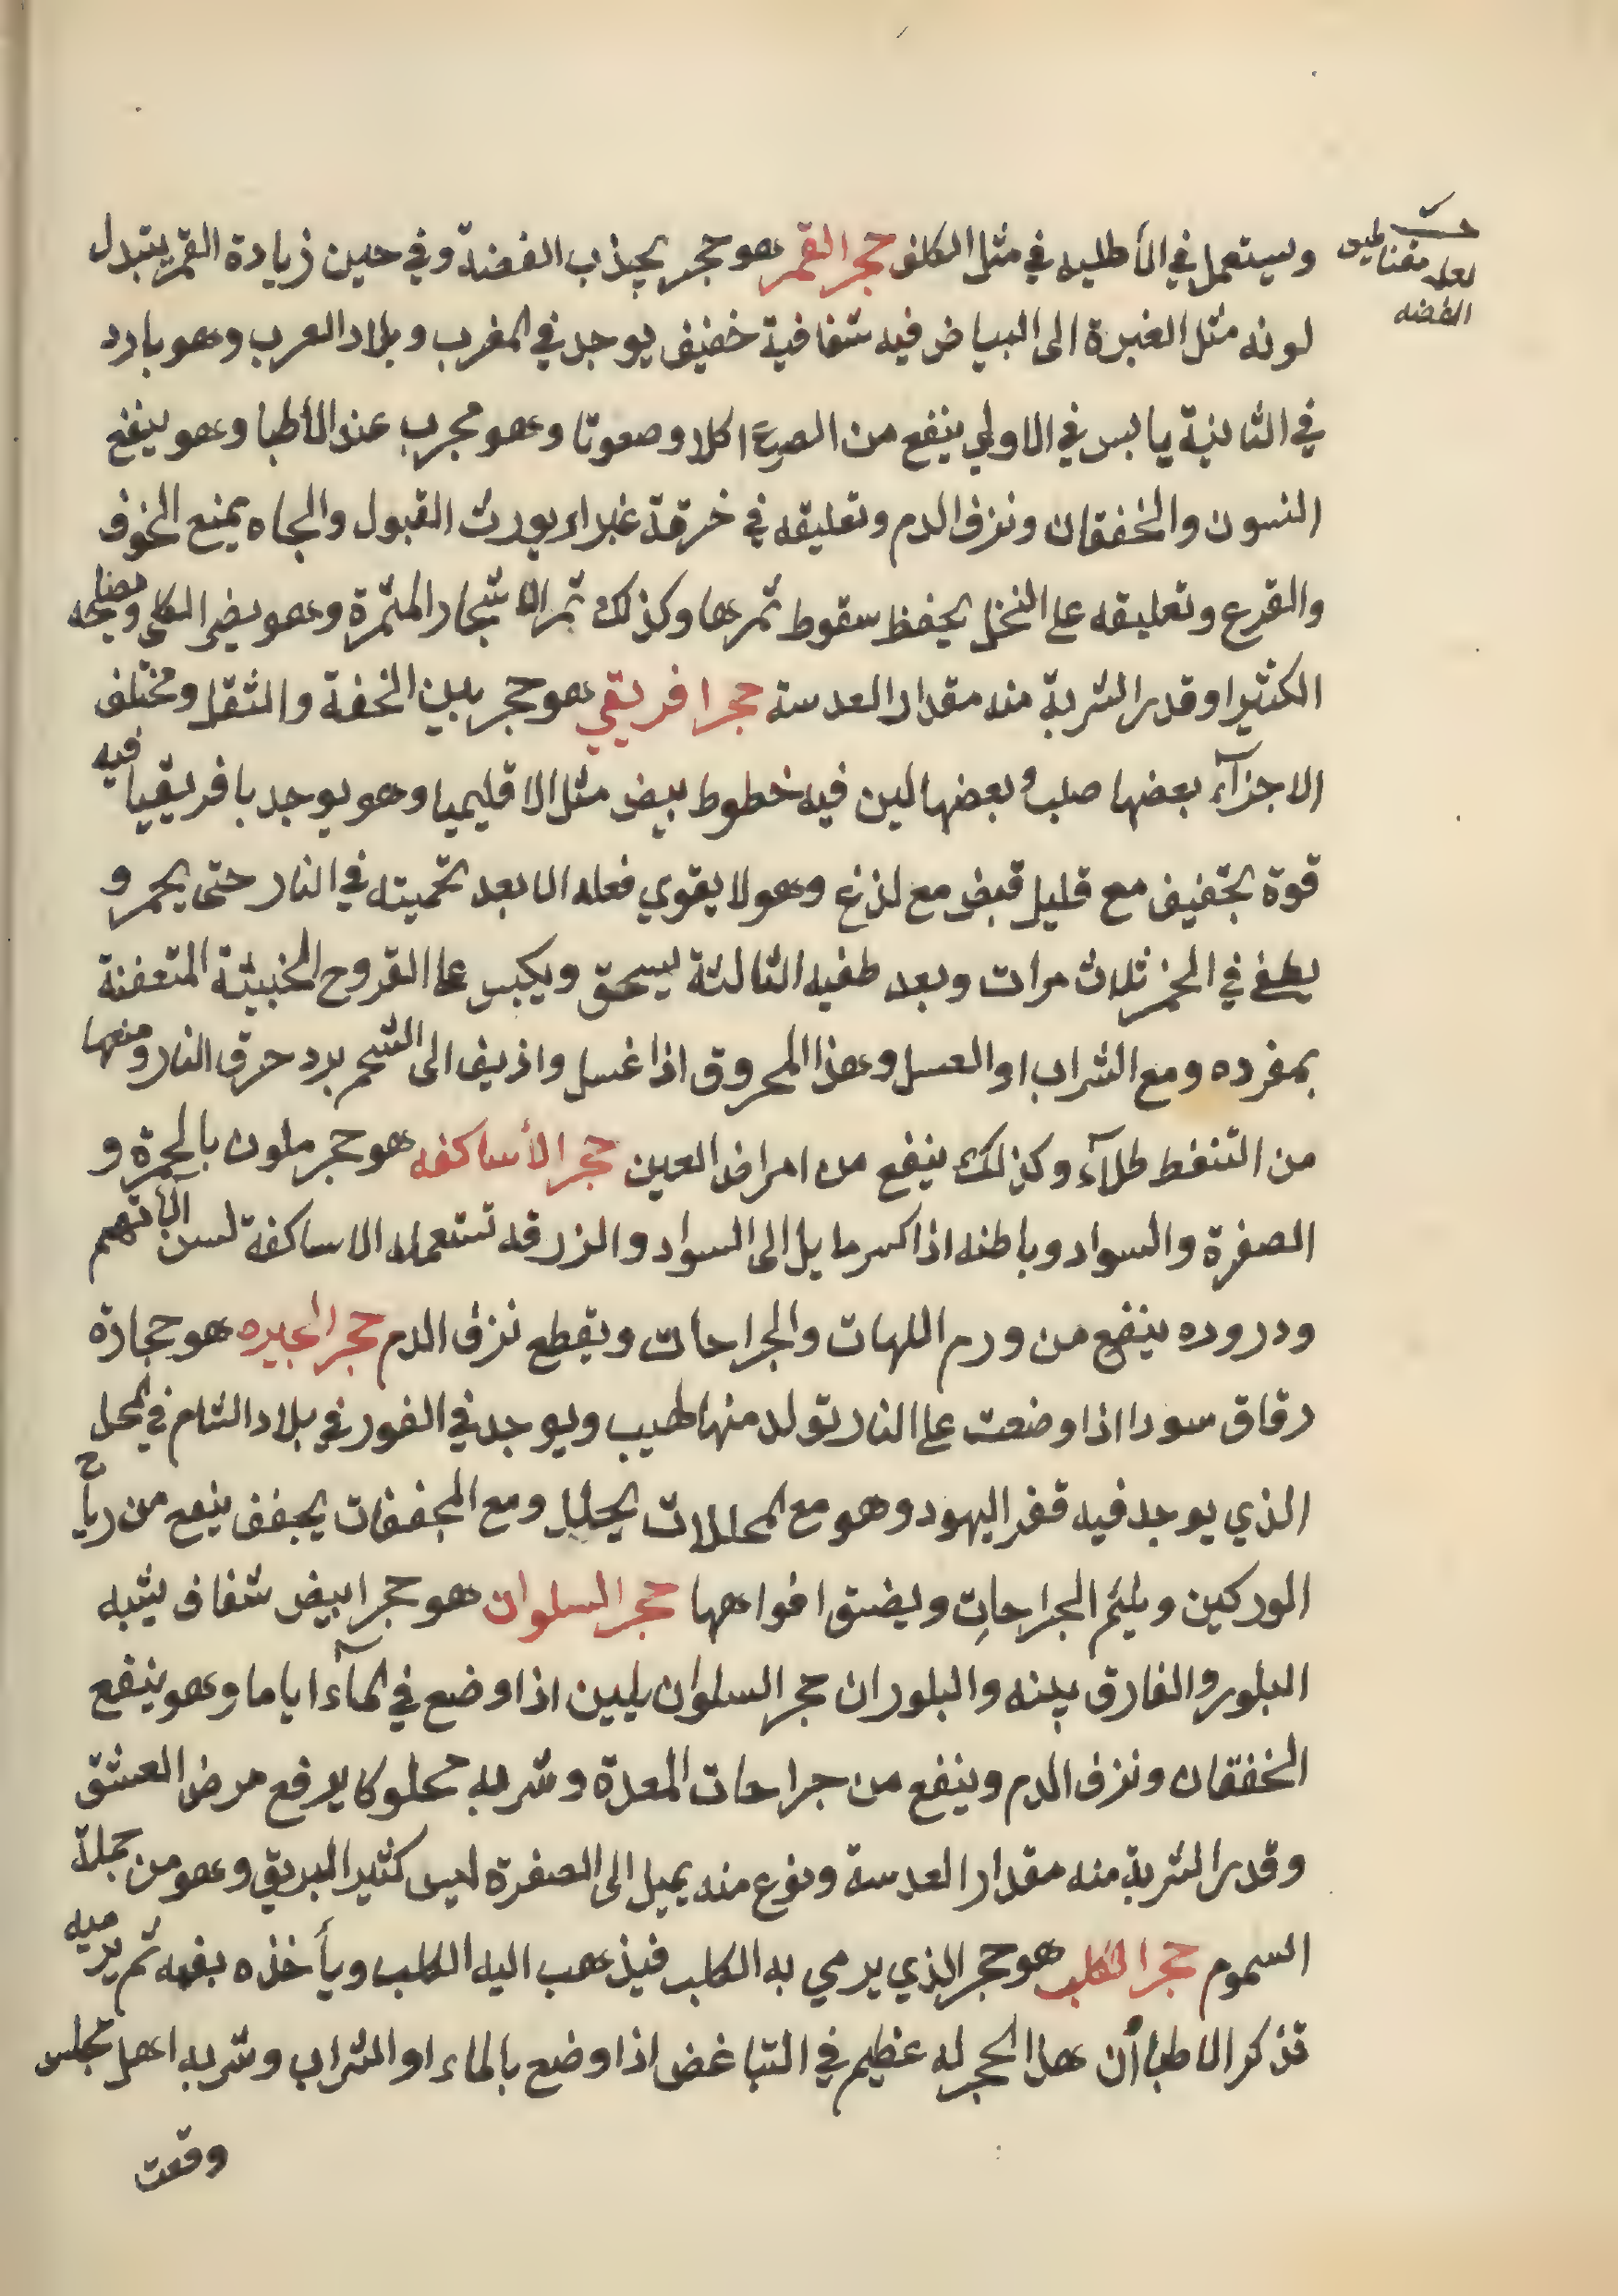 ويستعمل في الأطليه في مثل الكلف حجر القمر هو حجر يجذب الفضة وفي حين زيادة القمر يتبدل
لعله مغناطيس
الفضه
لونه مثل الغبرة الى البياض فيه شفافية خفيف يوجد في المغرب وبلاد العرب وهو بارد
في الثانية يابس في الاولي ينفع من الصرع اكلا وصعوتا وهو مجرب عند الأطبا وهو ينفع
النسون والخفقان ونزف الدم وتعليقه في خرقة غبراء يورث القبول والجاه يمنع الخوف
والقرع وتعليقه على النخل يحفظ سقوط ثمرها وكذلك ثمر الاشجار المثمرة وهو يضر الكلى ومصلحه
الكثيرا وقدر الشربة منه مقدار العدسة حجر افريقي هو حجر بين الخفة والثقل ومختلف
الاجزآء بعضها صلب وبعضها لين فيه خطوط بيض مثل الاقليميا وهو يوجد بافريقيا فيه
قوة تجفيف مع قليل قبض مع لذغ وهو لا يقوي فعله الا بعد تحميته في النار حتى يحمر و
يطفى في الخمر ثلاث مرات وبعد طفيه الثالثة يسحق ويكبس على القروح الخبيثة المتعفنة
بمفرده ومع الشراب او العسل وهذا المحروق اذا غسل واذيف الى الشحم برد حرق النار ومنعها
من التنفط طلآء وكذلك ينفع من امراض العين حجر الأساكفه هو حجر ملون بالحمرة و
الصفرة والسواد وباطنه اذا كسر مايل الى السواد والزرقه تستعمله الاساكفة لسن الأتهم
ودروره ينفع من ورم اللهات والجراحات ويقطع نزف الدم حجر الجبيره هو حجارة
رقاق سودا اذا وضعت على النار تولد منها لهيب ويوجد في الغور في بلاد الشام في المحل
الذي يوجد فيه قفر اليهود وهو مع المحللات يحلل ومع المجففات يجفف ينفع من رياح
الوركين ويلئم الجراحاتِ ويضيق افواهها حجر السلوان هو حجر ابيض شفاف يشبه
البلور والفارق بينه والبلور ان حجر السلوان يلين اذا وضع في المآء اياما وهو ينفع
الخفقان ونزف الدم وينفع من جراحات المعدة وشربه محلوكا يرفع مرض العشق
وقدر الشربة منه مقدار العدسة ونوع منه يميل الى الصفرة ليس كثير البريق وهو من جملة
السموم حجر الكلب هو حجر الذي يرمي به الكلب فيذهب اليه الكلب ويأخذه بفمه ثم يرميه
قد ذكر الاطبا أن هذا الحجر له عظيم في التباغض اذا وضع بالماء او الشراب وشربه اهل مجلس
وقعت